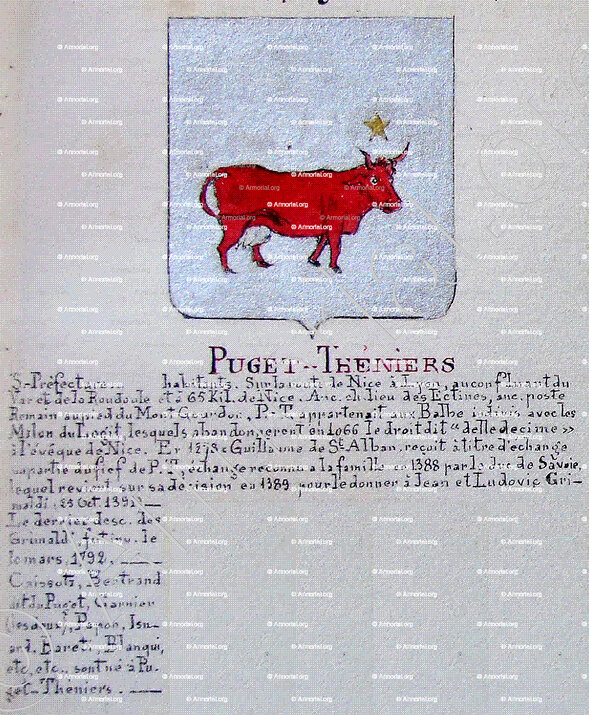 PUGET--THÉNIERS
S-Préfecture habitants. Sur la route de Nice à Lyon, au confluent du
Var et de la Roudoule et à 65 Kil. de Nice. Anc. ch. lieu des Ectines, anc. poste
Romain au pied du Mont Gourdon, P-T. appartenait aux Balbe indivis avec les
du lesquels abandonneront en 1066 le droit dit "delle decime"
à l'évêque de Nice. En Guillaume de St Alban, reçoit à titre d'échange
une partie du fief de P.T., échange reconnu a la famille en 1388 par le duc de Savoie,
lequel revient sur sa décision en 1389 pour le donner à Jean et Ludovic Gri-
maldi (23 Oct. 1391)—
Le dernier desc. des
Grimaldi le
10 mars, 1792. ——
Caissotti, Bertrand
du Puget, Garnier
Papon, Isn-
ard, Bareti, Blanqui,
etc, etc., sont né à Pu-
get-Théniers. ——
© Armorial.org